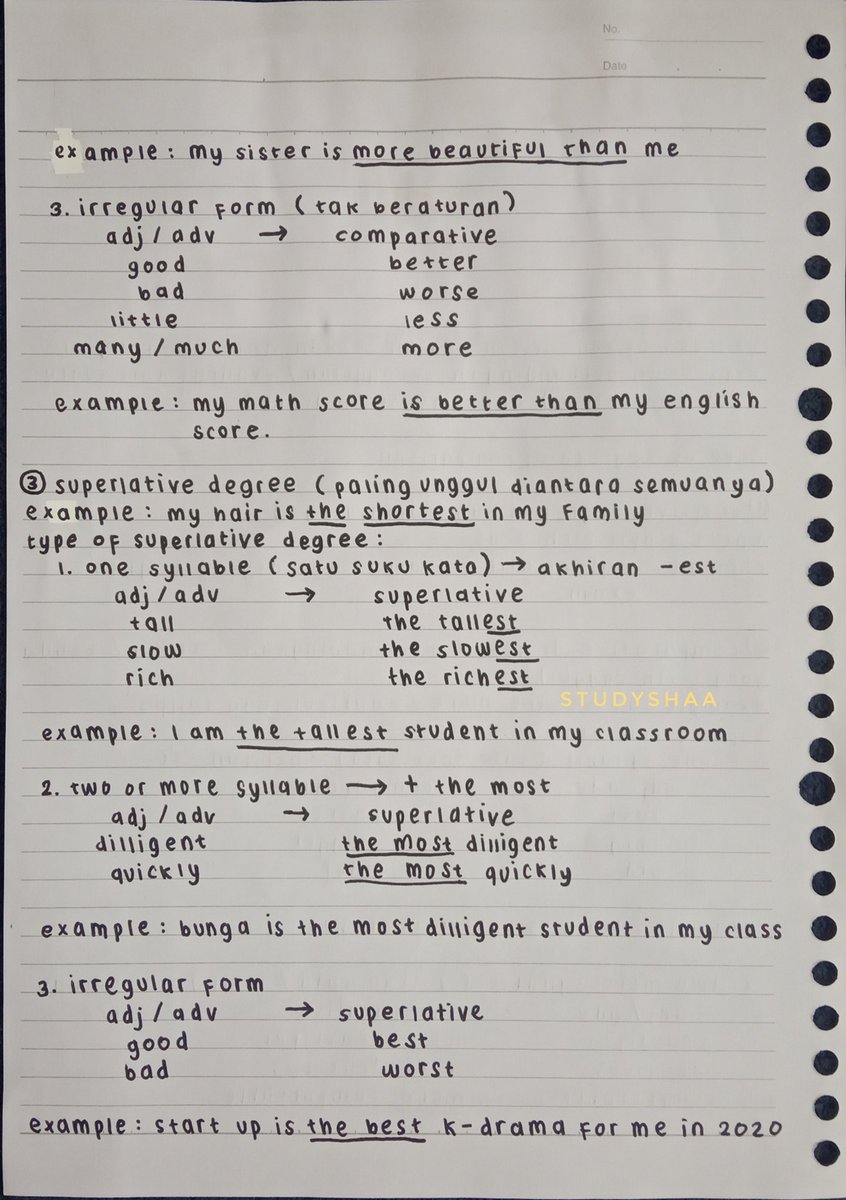 No.
Date
example : my sister is more beautiful than me
3. irregular form ( tak beraturan )
adj / adv → comparative
good better
bad worse
little less
many / much more
example : my math score is better than my english
score.
③ superlative degree ( paling unggul diantara semuanya )
example : my hair is the shortest in my family
type of superlative degree :
1. one syllable ( satu suku kata ) → akhiran -est
adj / adv → superlative
tall the tallest
slow the slowest
rich the richest
STUDYSHAA
example : I am the tallest student in my classroom
2. two or more syllable → + the most
adj / adv → superlative
dilligent the most dilligent
quickly the most quickly
example : bunga is the most dilligent student in my class
3. irregular form
adj / adv → superlative
good best
bad worst
example : start up is the best k-drama for me in 2020